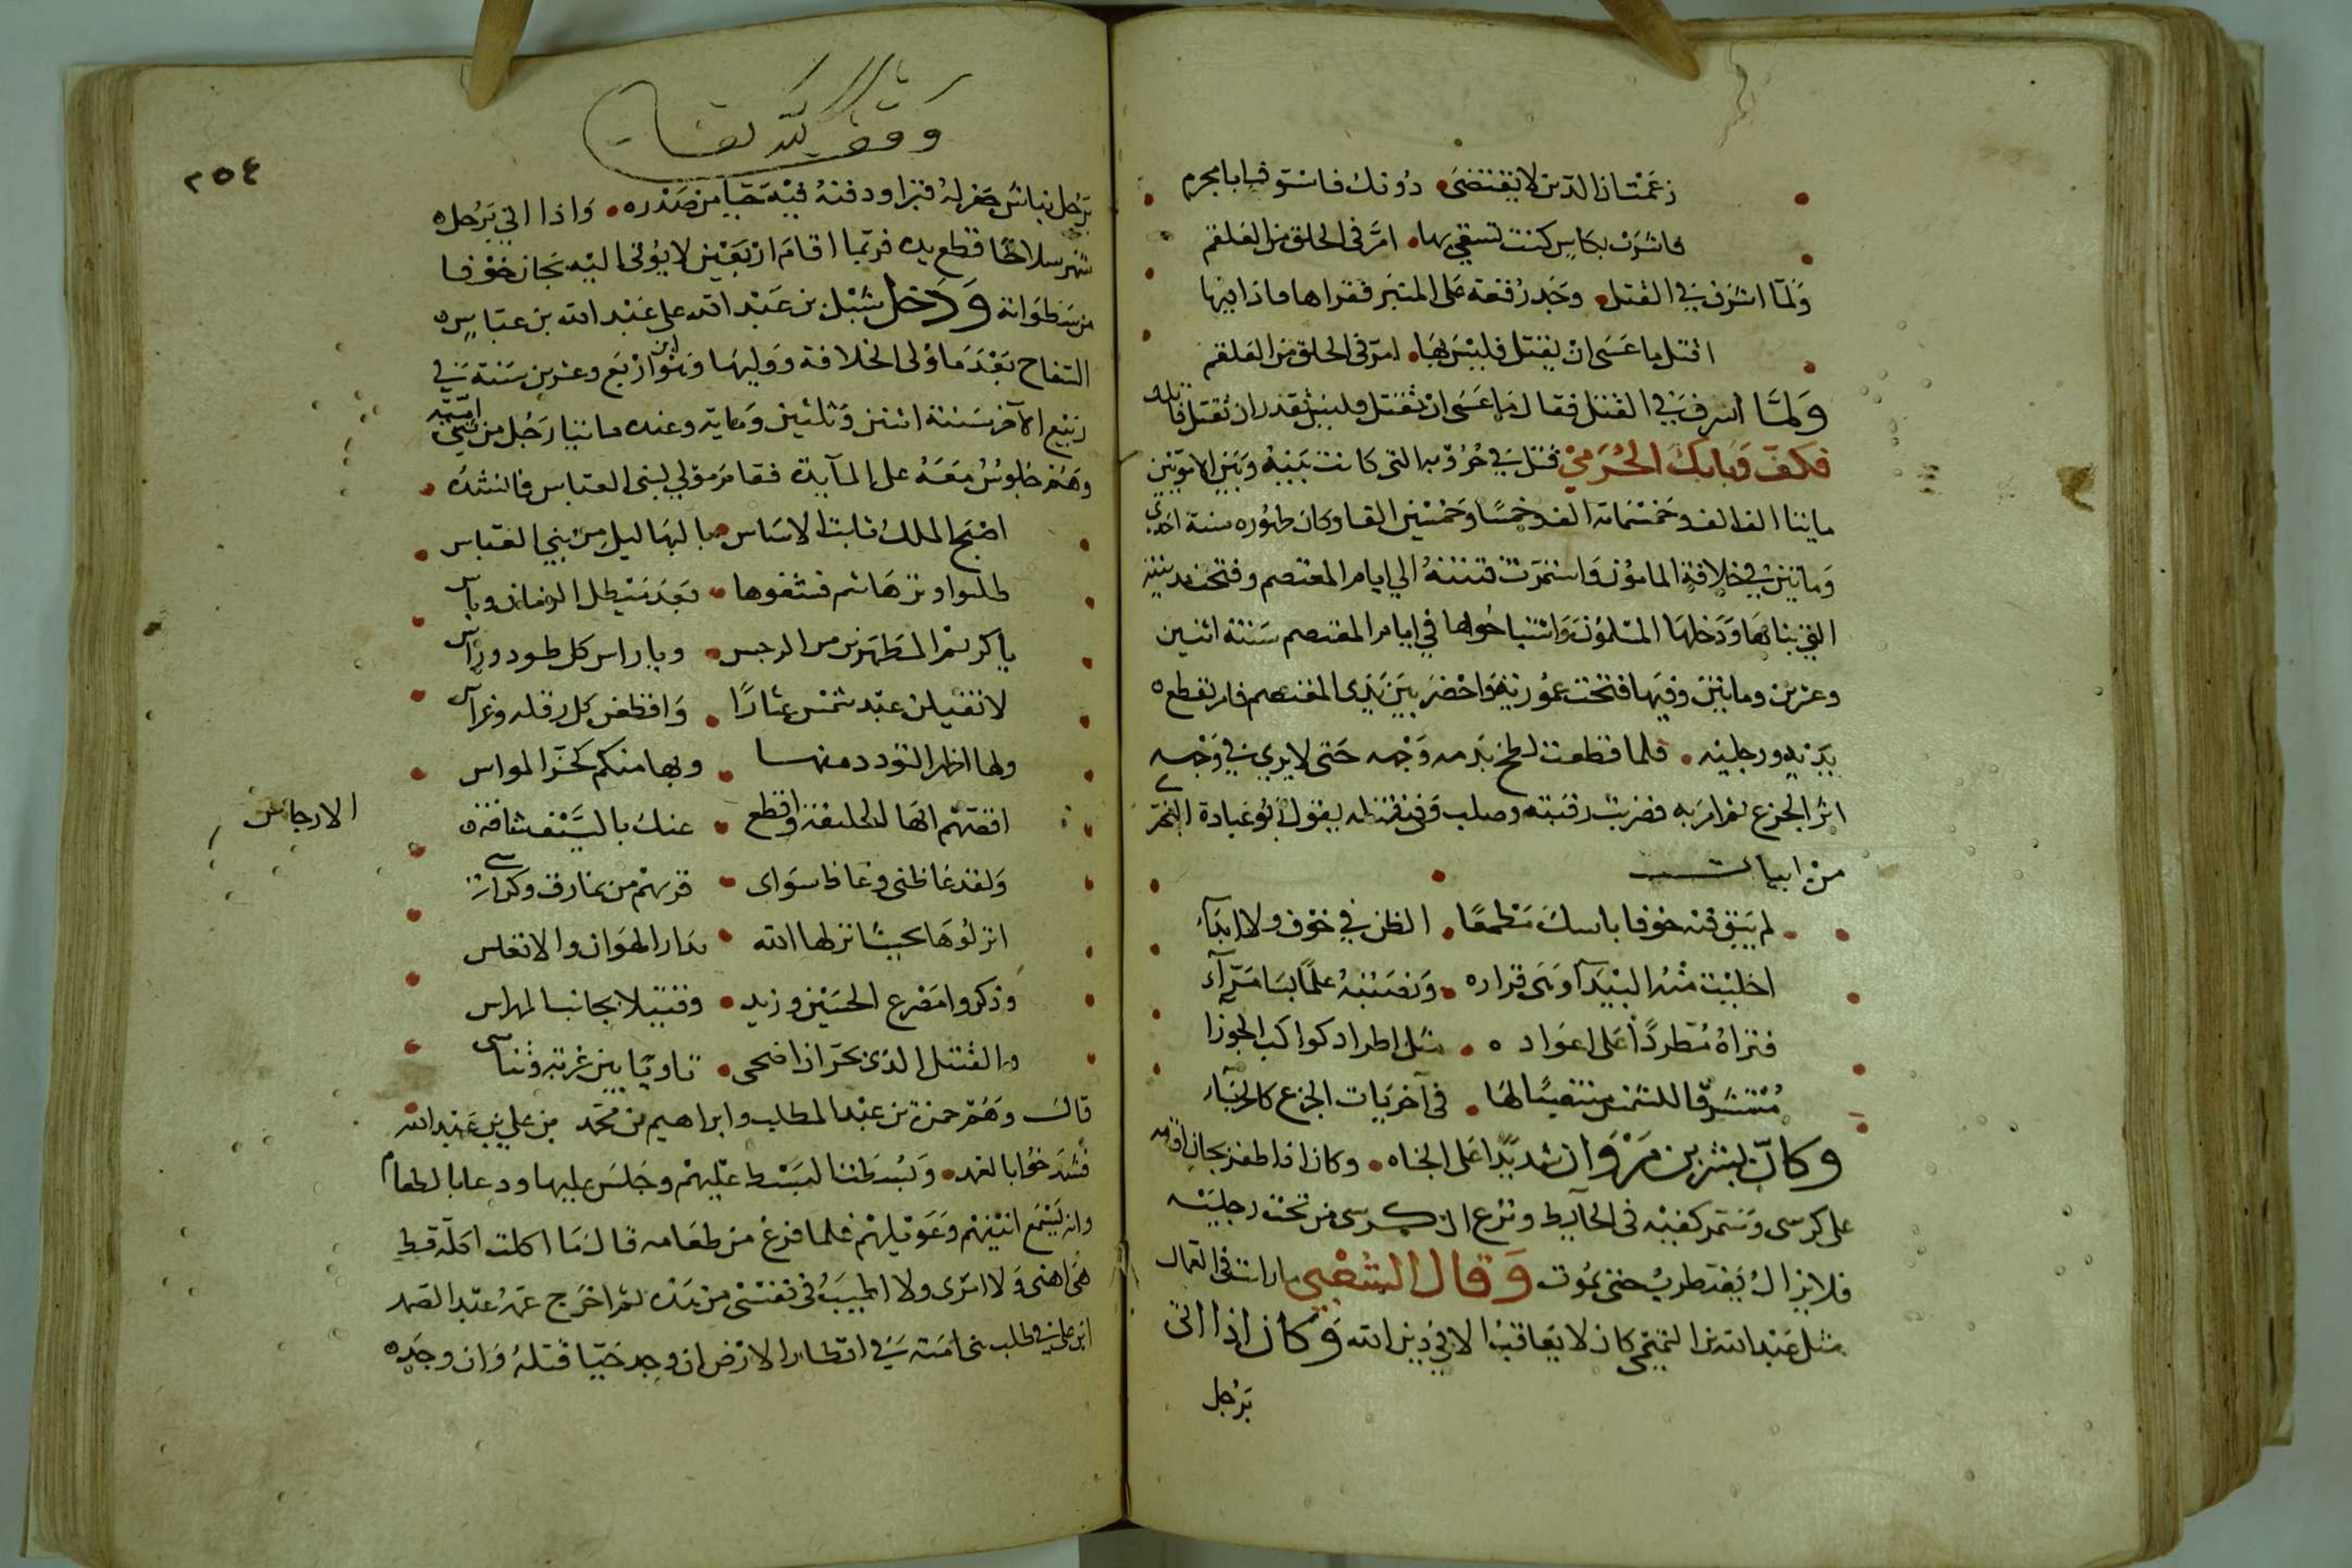 زعمت ان الدين لا يقتضى • دونك فاستوف ابا مجرم
فاشرب بكاس كنت تسقي بها • امر في الحلق من العلقم
ولما اسرف في القتل وجد رقعة على المنبر فقراها فاذا فيها
اقتل ما عسى ان يقتل فليس بها • امر في الحلق من العلقم
ولما اسرف في القتل فقال ما عسى ان تقتل فليس تقدر ان تقتل قاتلك
فكف وبابك الخرمي قتل في حروبه التي كانت بينه وبين
مايتا الف الف وخمسمائة الف وخمسا وخمسين الفا وكان ظهوره سنة احدي
ومايتين في خلافة المامون واستمرت فتنته الي ايام المعتصم وفتحت مدينته
التي بناها ودخلها المسلمون واستباحوها في ايام المعتصم سنة اثنين
وعشرين ومايتين وفيها فتحت عمورية واحضر بين يدى المعتصم فامر بقطع
يديه ورجليه • فلما قطعت لطخ بدمه وجهه حتى لا يري في وجهه
اثر الجزع ثم امر به فضربت رقبته وصلب وفي قتله يقول ابو عبادة البحتري
من ابيات
لم يبق فيه خوف باسك مطمعا • الظن في خوف ولا ابداء
اخليت منه البيد وهي قراره • ونصبته علما بسامراء
فتراه مطردا على اعواده • مثل اطراد كواكب الجوزا
مستشرفا للشمس منتصبا لها • في آخريات الجزع كالحرباء
وكان بشر بن مروان شديدا على الجناه • وكان اذا ظفر بجان اقامه
على كرسى وسمر كفيه في الحايط ونزع الكرسى من تحت رجليه
فلا يزال يضطرب حتى يموت وقال الشعبي ما رايت في العمال
مثل عبد الله بن التميمى كان لا يعاقب الا في دين الله وكان اذا اتى
برجل
وقف لله تعالى
٢٥٤
برجل نباش حفر له قبرا ودفنه فيه حيا من صدره • واذا اتي برجل
شهر سلاحا قطع يده فربما اقام اربعين لا يؤتى اليه بجان خوفا
من سطواته ودخل شبل بن عبد الله على عبد الله بن عباس
السفاح بعد ما ولى الخلافة ووليها وهو ابن اربع وعشرين سنة في
ربيع الآخر سنة اثنين وثلثين ومايه وعنده مايتا رجل من بني امية
وهم جلوس معه على المآيدة فقام مولي لبنى العباس فانشده
اصبح الملك ثابت الاساس • بالبهاليل من بني العباس
طلبوا وتر هاشم فشفوها • بعد ميل من الزمان وياس
يا كريم المطهرين من الرجس • ويا راس كل طود وراس
لا تقيلن عبد شمس عثارا • واقطعن كل رقلة وغراس
ولها اظهر التودد منها • وبها منكم كحز المواس
اقصهم ايها الخليفة واقطع • عنك بالسيف شافة
الارجاس
ولقد غاظني وغاظ سواى • قربهم من نمارق وكراسى
انزلوها بحيث انزلها الله • بدار الهوان والاتعاس
وذكروا مصرع الحسين وزيد • وقتيلا بجانب المهراس
والقتيل الذى بحران اضحى • ثاويا بين غربة وتناسى
قال وهم حمزة بن عبد المطلب وابراهيم بن محمد بن علي بن عبد الله
فشدخوا بالعمد • وبسطت البسط عليهم وجلس عليها ودعا بالطعام
وانه ليسمع انينهم وعويلهم فلما فرغ من طعامه قال ما اكلت اكلة قط
هي اهنى ولا امرى ولا اطيب في نفسي من هذه ثم اخرج عمه عبد الصمد
ابن على في طلب بني امية في اقطار الارض ان وجد حيا قتله وان وجده